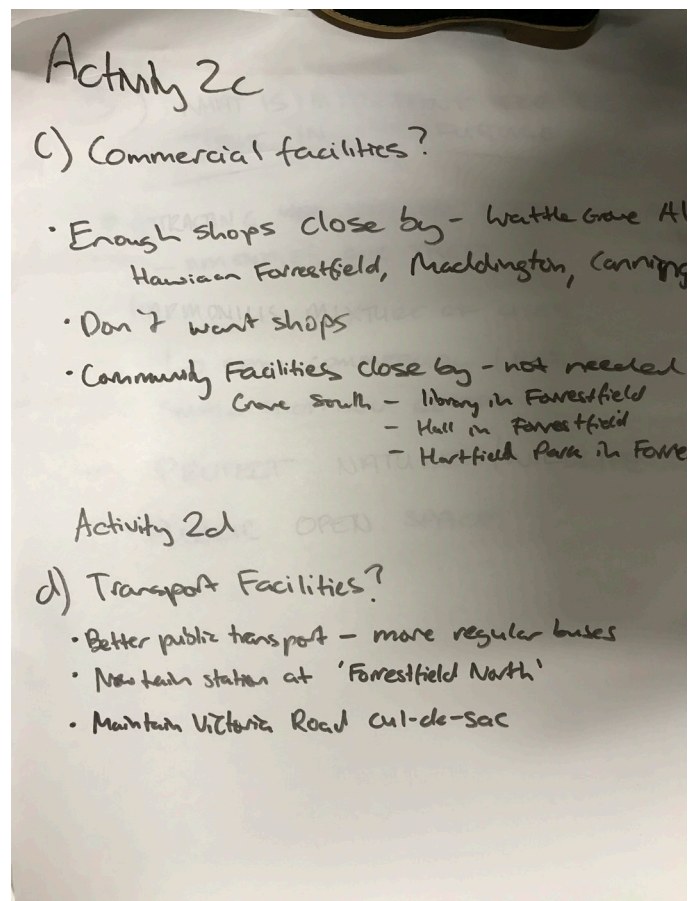 Activity 2c
c) Commercial facilities?
· Enough shops close by - Wattle Grove Al
Hawiaan Forrestfield, Maddington, Canning
· Don't want shops
· Community Facilities close by - not needed
Grove South - library in Forrestfield
- Hall in Forrestfield
- Hartfield Park in Forre
Activity 2d
d) Transport Facilities?
· Better public transport - more regular buses
· New train station at 'Forrestfield North'
· Maintain Victoria Road cul-de-sac
OPEN SPACE